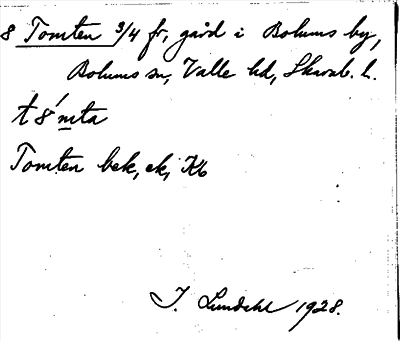 8 Tomten 3/4 fr, gård i Bolums by,
Bolums sn, Valle hd, Skarab. l.
t8´mta
Tomten bek, ek, Kb
J. Lundahl 1928.